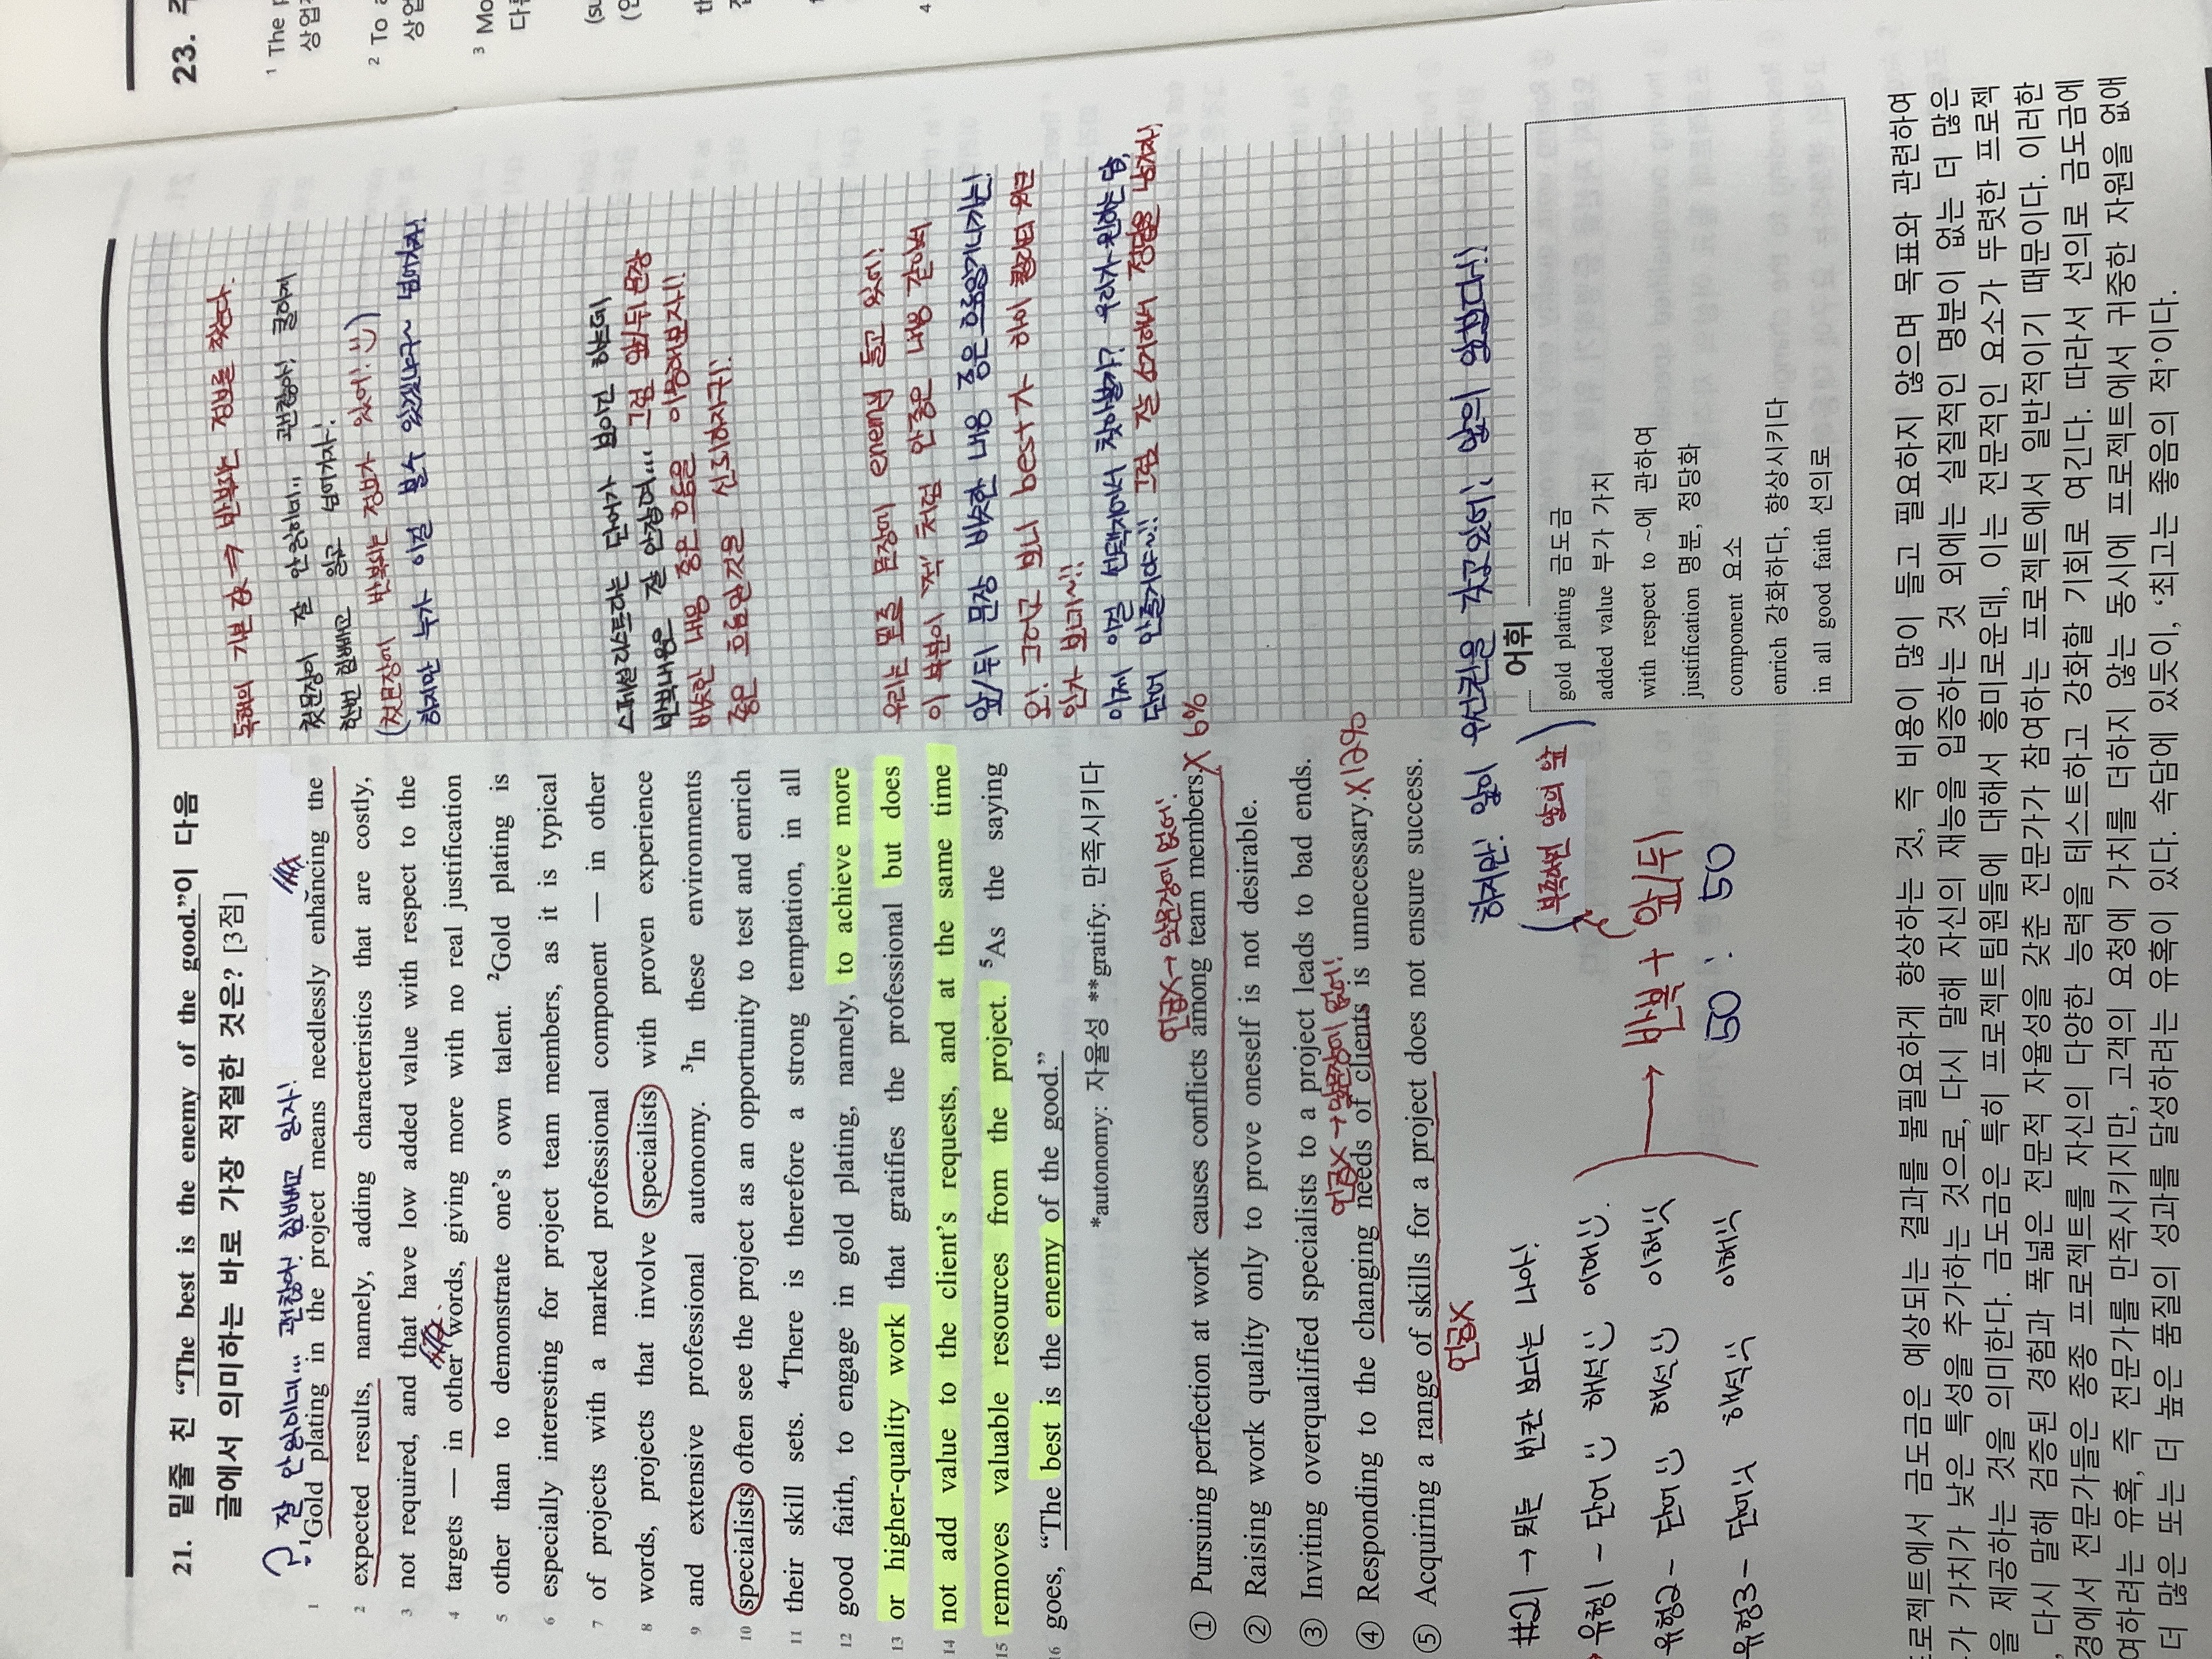 21. 밑줄 친 “The best is the enemy of the good.”이 다음
글에서 의미하는 바로 가장 적절한 것은? [3점]
? 잘 안읽히네... 괜찮아! 한번빼고 읽자!
1 ¹Gold plating in the project means needlessly enhancing the
2 expected results, namely, adding characteristics that are costly,
3 not required, and that have low added value with respect to the
4 targets — in other words, giving more with no real justification
5 other than to demonstrate one’s own talent. ²Gold plating is
6 especially interesting for project team members, as it is typical
7 of projects with a marked professional component — in other
8 words, projects that involve specialists with proven experience
9 and extensive professional autonomy. ³In these environments
10 specialists often see the project as an opportunity to test and enrich
11 their skill sets. ⁴There is therefore a strong temptation, in all
12 good faith, to engage in gold plating, namely, to achieve more
13 or higher-quality work that gratifies the professional but does
14 not add value to the client’s requests, and at the same time
15 removes valuable resources from the project. ⁵As the saying
16 goes, “The best is the enemy of the good.”
*autonomy: 자율성 **gratify: 만족시키다
언급X → 앞문장이 없어!
① Pursuing perfection at work causes conflicts among team members. X 6%
② Raising work quality only to prove oneself is not desirable.
③ Inviting overqualified specialists to a project leads to bad ends.
언급X → 앞문장에 없어!
④ Responding to the changing needs of clients is unnecessary. X 12%
⑤ Acquiring a range of skills for a project does not ensure success.
언급X
#21 → 뭐든 빈칸 보다는 나아!
유형1 - 단어 해석 이해
유형2 - 단어 해석 이해
유형3 - 단어 해석 이해
→ 반복 + 앞/뒤
50 : 50
하지만! 앞이 우선권을 갖고있어! 앞의 앞보다!!
(부족하면 앞의 앞)
독해의 기본 각 → 반복되는 정보를 찾는다.
첫문장이 잘 안읽히네.. 괜찮아! 쿨하게
한번 빼고 읽고 넘어가자!
(첫문장에 반복되는 정보가 있어!)
하지만 누가 이걸 볼수 있겠냐구~ 넘어가자!
스페셜리스트라는 단어가 보이긴 하는데
반복내용은 잘 안잡혀... 그럼 앞/뒤 문장
비슷한 내용 좋은 흐름을 이용해보자!!
좋은 흐름일것을 신뢰하자구!
우리는 밑줄 문장에 enemy 들고 있어!
이 부분이 ‘적’ 처럼 안좋은 내용 같아서
앞/뒤 문장 비슷한 내용 좋은흐름생기니까는!
오! 그리고 보니 best가 하이 퀄리티 워크
인가 보다~!!
이제 이걸 선택지에서 찾아볼까? 우리가 원하는 답,
단어 안줄거야~!! 그럼 잘 소거해서 정답을 남기자!
어휘
gold plating 금도금
added value 부가 가치
with respect to ~에 관하여
justification 명분, 정당화
component 요소
enrich 강화하다, 향상시키다
in all good faith 선의로
프로젝트에서 금도금은 예상되는 결과를 불필요하게 향상하는 것, 즉 비용이 많이 들고 필요하지 않으며 목표와 관련하여
가 가치가 낮은 특성을 추가하는 것으로, 다시 말해 자신의 재능을 입증하는 것 외에는 실질적인 명분이 없는 더 많은
을 제공하는 것을 의미한다. 금도금은 특히 프로젝트팀원들에 대해서 흥미로운데, 이는 전문적인 요소가 뚜렷한 프로젝
, 다시 말해 검증된 경험과 폭넓은 전문적 자율성을 갖춘 전문가가 참여하는 프로젝트에서 일반적이기 때문이다. 이러한
경에서 전문가들은 종종 프로젝트를 자신의 다양한 능력을 테스트하고 강화할 기회로 여긴다. 따라서 선의로 금도금에
여하려는 유혹, 즉 전문가를 만족시키지만, 고객의 요청에 가치를 더하지 않는 동시에 프로젝트에서 귀중한 자원을 없애
더 많은 또는 더 높은 품질의 성과를 달성하려는 유혹이 있다. 속담에 있듯이, ‘최고는 좋음의 적’이다.
23.
¹ The
상업
² To a
상업
³ Mo
다른